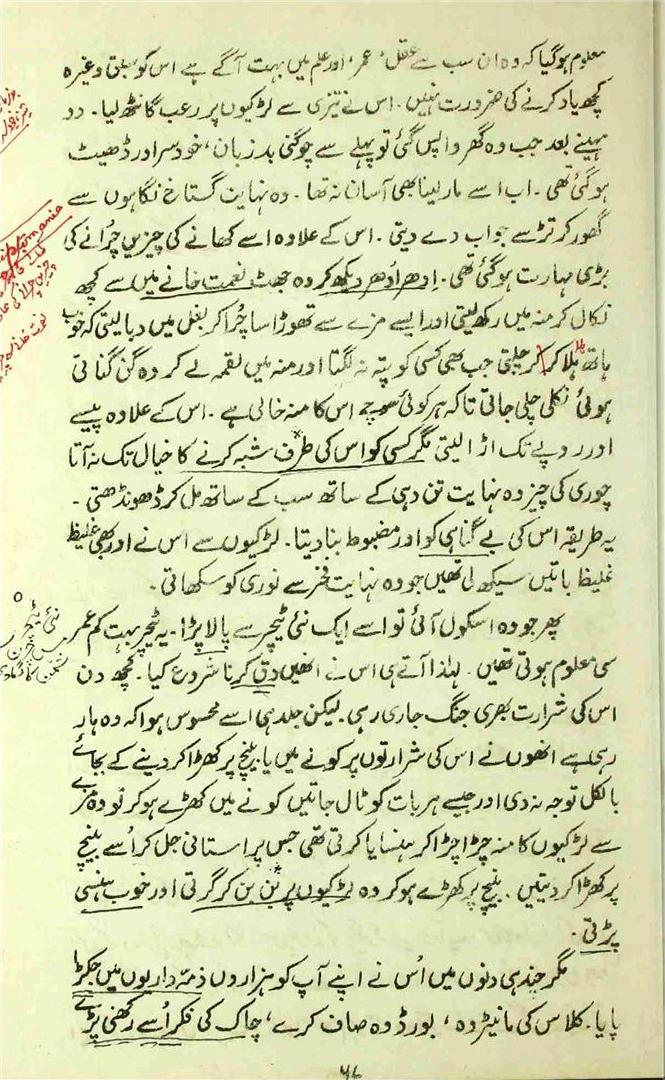 معلوم ہوگیا کہ وہ ان سب سے عقل، عمر، اور علم میں بہت آگے ہے اس کو سبق وغیرہ
کچھ یاد کرنے کی ضرورت نہیں۔ اس نے تیزی سے لڑکیوں پر رعب گانٹھ لیا۔ دو
مہینے بعد جب وہ گھر واپس گئی تو پہلے سے چوگنی بد زبان، خود سر اور ڈھیٹ
ہوگئی تھی۔ اب اسے مار لینا بھی آسان نہ تھا۔ وہ نہایت گستاخ نگاہوں سے
گھور کر تڑ سے جواب دے دیتی۔ اس کے علاوہ اسے کھانے کی چیزیں چرانے کی
بڑی مہارت ہوگئی تھی۔ ادھر اُدھر دیکھ کر وہ جھٹ نعمت خانے میں سے کچھ
نکال کر منہ میں رکھ لیتی اور ایسے مزے سے تھوڑا سا چُرا کر بغل میں دبا لیتی کہ خوب
ہاتھ ہلا کر کر چلتی جب بھی کسی کو پتہ نہ لگتا اور منہ میں لقمہ لے کر وہ گن گناتی
ہوئی نکلی چلی جاتی تاکہ ہر کوئی سمجھے اس کا منہ خالی ہے۔ اس کے علاوہ پیسے
اور روپے تک اڑا لیتی مگر کسی کو اس کی طرف شبہ کرنے کا خیال تک نہ آتا
چوری کی چیز وہ نہایت تن دہی کے ساتھ سب کے ساتھ مل کر ڈھونڈھتی۔
یہ طریقہ اس کی بے گناہی کو اور مضبوط بنا دیتا۔ لڑکیوں سے اس نے اور بھی غلیظ
غلیظ باتیں سیکھ لی تھیں جو وہ نہایت فخر سے نوری کو سکھاتی۔
پھر جو وہ اسکول آئی تو اسے ایک نئی ٹیچر سے پالا پڑا۔ یہ ٹیچر بہت کم عمر
سی معلوم ہوتی تھیں۔ لہٰذا آتے ہی اس نے انھیں دق کرنا شروع کیا۔ کچھ دن
اس کی شرارت بھری جنگ جاری رہی۔ لیکن جلد ہی اسے محسوس ہوا کہ وہ ہار
رہی ہے انھوں نے اس کی شرارتوں پر کونے میں یا بینچ پر کھڑا کر دینے کے بجائے
بالکل توجہ نہ دی اور جیسے ہر بات کو ٹال جاتیں کونے میں کھڑے ہوکر تو وہ مزے
سے لڑکیوں کا منہ چڑا چڑا کر ہنسایا کرتی تھی جس پر استانی جل کر اُسے بینچ
پر کھڑا کر دیتیں۔ بینچ پر کھڑے ہوکر وہ لڑکیوں پر بن بن کر گرتی اور خوب ہنسی
پڑتی۔
مگر چند ہی دنوں میں اُس نے اپنے آپ کو ہزاروں ذمّہ داریوں میں جکڑا
پایا۔ کلاس کی مانیٹر وہ، بورڈ وہ صاف کرے، چاک کی فکر اُسے رکھنی پڑے
نئی ٹیچر
۵۶